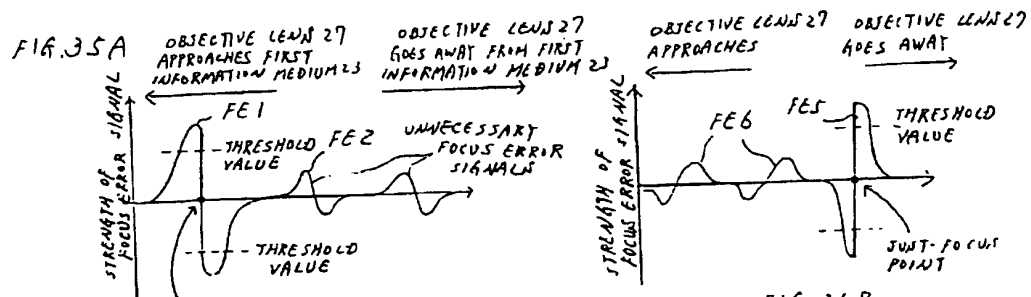 FIG.35A
OBJECTIVE LENS 27
APPROACHES FIRST
INFORMATION MEDIUM 23
OBJECTIVE LENS 27
GOES AWAY FROM FIRST
INFORMATION MEDIUM 23
STRENGTH OF
FOCUS ERROR SIGNAL
FE1
THRESHOLD
VALUE
FE2
UNNECESSARY
FOCUS ERROR
SIGNALS
THRESHOLD
VALUE
OBJECTIVE LENS 27
APPROACHES
OBJECTIVE LENS 27
GOES AWAY
STRENGTH OF
FOCUS ERROR SIGNAL
FE6
FE5
THRESHOLD
VALUE
JUST-FOCUS
POINT